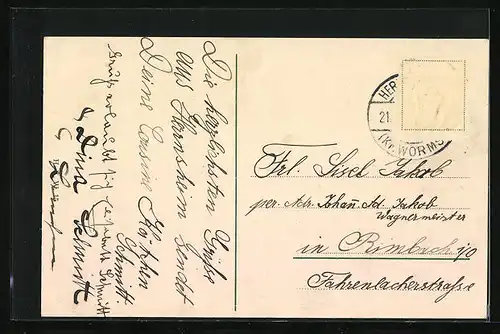 Die herzlichsten Grüße
aus Hernsheim sendet
Deine Cousine Käthchen
Schmitt.
Gruß erlaubt sich Elisabeth Schmitt
Dina Schmitt
HER
21.
(Kr. WORMS
Frl. Sisel Jakob
per. Adr. Johañ Ad. Jakob
Wagnermeister
in Rimbach i/O
Fahrenbacherstraße